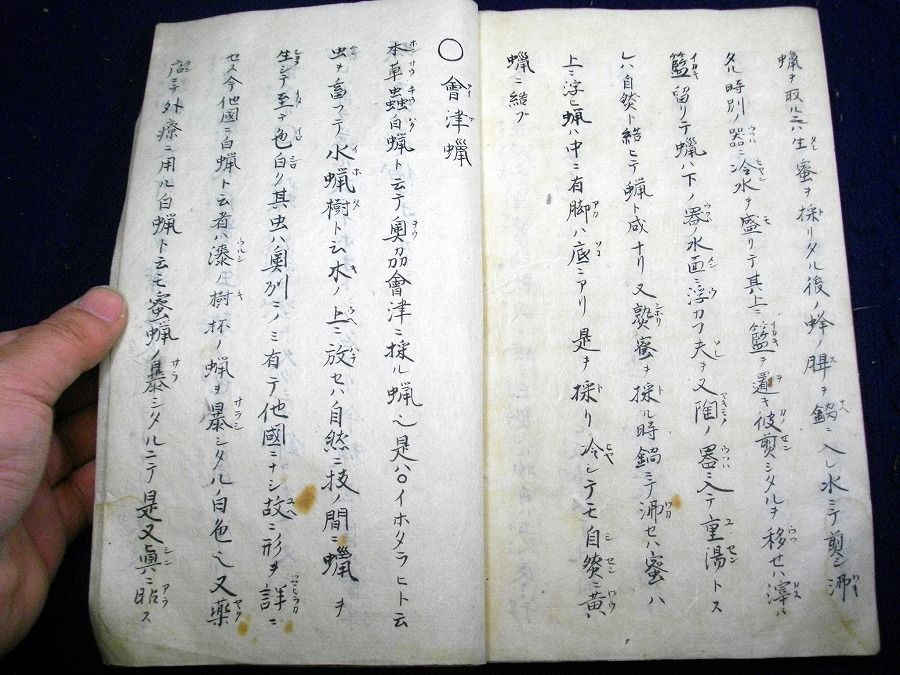 蝋ヲ取ルニハ生蜜ヲ採リタル後ノ蜂ノ脾ヲ鍋ニ入レ水ニテ煎シ沸
タル時別ノ器ニ冷水ヲ盛リテ其上ニ籃ヲ置キ彼煎シタルヲ移セハ滓ハ
籃ニ留リテ蝋ハ下ノ器ノ水面ニ浮カフ夫ヲ又陶ノ器ニ入テ重湯トス
レハ自然ト結ヒテ蝋ト成ナリ又熟蜜ヲ採ル時鍋ニテ沸セハ蜜ハ
上ニ浮ヒ蝋ハ中ニ有脚ハ底ニアリ是ヲ採リ冷シテモ自然ニ黄
蝋ニ結ブ
〇會津蝋
本草蟲白蝋ト云テ奥刕會津ニ採ル蝋也是ハ〇イホタラヒト云
虫ヲ畜フテ水蝋樹ト云木ノ上ニ放セハ自然ニ技ノ間ニ蝋ヲ
生シテ至テ色白ク其虫ハ奥列ニノミ有テ他國ニナシ故ニ形ヲ詳ニ
セス今他國ニ白蝋ト云者ハ漆ノ樹杯ノ蝋ヲ暴シタル白色也又藥
店ニテ外療ニ用ル白蝋ト云モ蜜蝋ノ暴シタルニテ是又眞ニ非ス